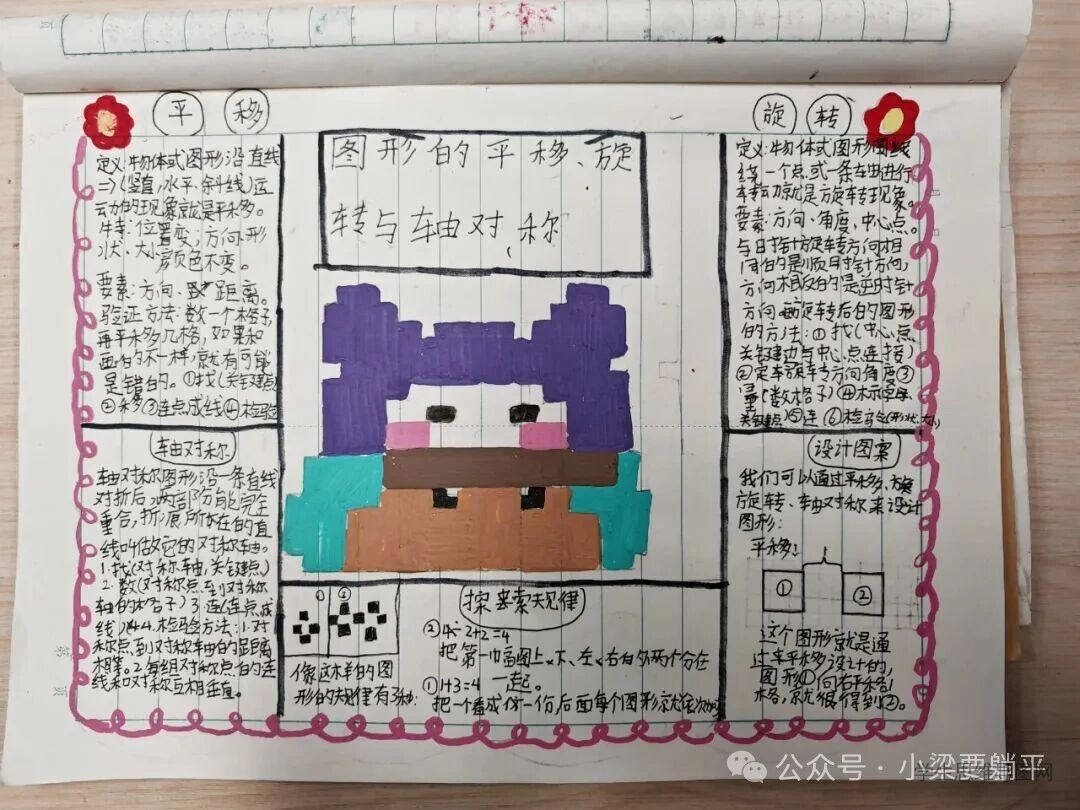 平移
定义:物体或图形沿直线
(竖直,水平、斜线)运
动的现象就是平移。
特等:位置变;方向、形
状、大小、颜色不变。
要素:方向、距离。
验证方法:数一个格子,
再平移多几格,如果和
画的不一样,就有可能
是错的。①找(关键点)
②移③连点成线④检验
图形的平移、旋
转与轴对称
旋转
定义:物体或图形
绕一个点或一条轴进行
转动就是旋转现象。
要素:方向、角度,中心点。
与时针旋转方向相
同的是顺时针方向,
方向相反的是逆时针
方向 旋转后的图形
的方法:①找(中心点
关键边与中心点连接)
②定 方向角度③
量(数格子)④标
关键点⑤连⑥检验(形状、大小)
轴对称
轴对称图形沿一条直线
对折后,两部分能完全
重合,折痕所在的直
线叫做它的对称轴。
1.找(对称轴,关键点)
2.数(对称点到对称
轴的格子)3.连(连点成
线)4.检验方法:1.对
称点到对称轴的距离
相等。2.每组对称点的连
线和对称互相垂直。
① ②
像这样的图
形的规律有3种:
探索规律
②4-2+2=4
把第一幅图上、下、左、右的外两个分在
一起。
①1+3=4
把一个看成一份后面每个图形就依次
设计图案
我们可以通过平移、旋
旋转、轴对称来设计
图形:
平移:
① ②
这个图形就是通
过平移设计的,
图形①向右平移
格,就得到②。
公众号 · 小梁要躺平